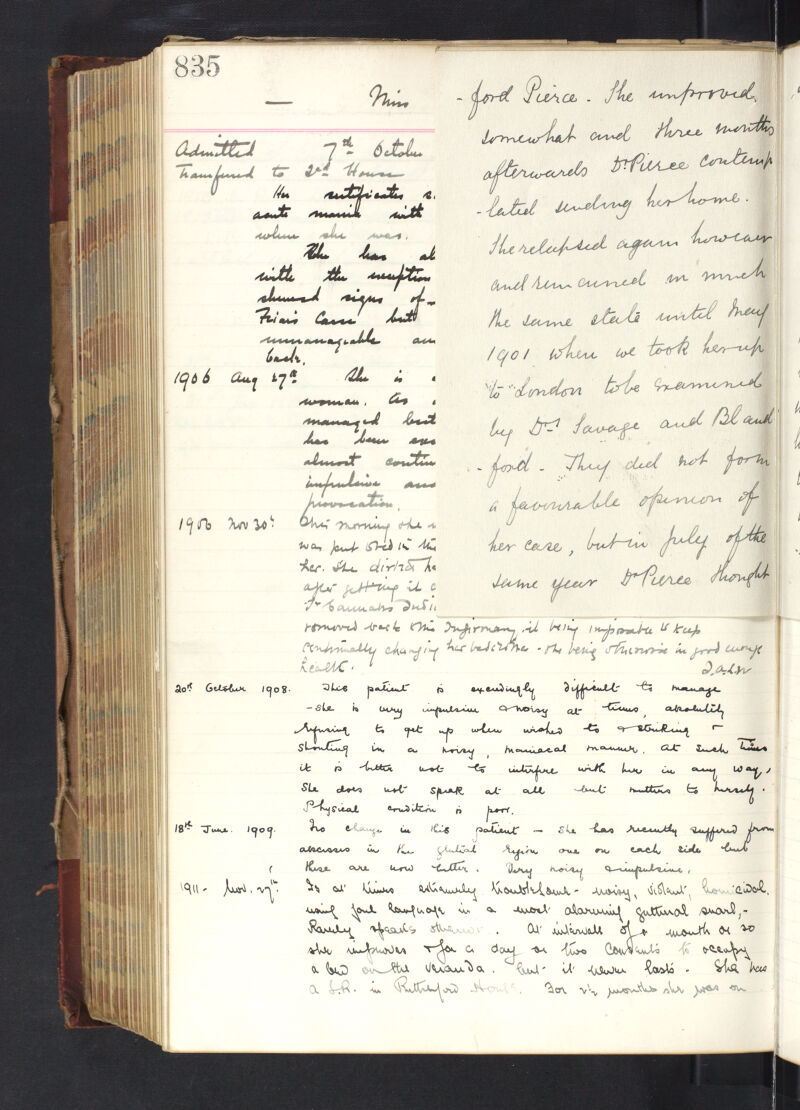 835
— Miss
Admitted 7th October
Transferred to 2nd House
Her certificates s
acute mania with
when she was.
She has al
with the exception
shewed signs of
Friars Carse but
unmanageable an
back.
1906 Aug 27th She is a
woman. As
managed but
has been
almost contin
impulsive and
provocation.
1906 Nov 30th This morning she
was put to bed in the
her. She
after getting it
St Cannabis Indi
removed back to the Infirmary, it being impossible to keep
continually changing her bedclothes - she being otherwise in good enough
health.
20th October 1908. This patient is exceedingly difficult to manage
- She is very impulsive & noisy at times, absolutely
refusing to get up when wished to & striking &
shouting in a noisy, maniacal manner. At such times
it is better not to interfere with her in any way,
She does not speak at all but mutters to herself.
Physical condition is poor.
18th June. 1909. No change in this patient — She has recently suffered from
abscesses in the gluteal region one on each side but
these are now better. Very noisy & impulsive.
1911 - Nov. 27th. Is at times extremely troublesome - noisy, violent, homicidal,
using foul language in a most alarming guttural snarl, -
Rarely speaks otherwise. At intervals of a month or so
she improves & for a day or two consents to occupy
a bed on the veranda. but it never lasts. She has
a S.R. in Rutherford House. For 2½ months she was on
- ford Pierce. She improved,
somewhat and three months
afterwards Dr Pierce contemp
- lated sending her home.
She relapsed again however
and remained in much
the same state until May
1901 when we took her up
to London to be examined
by Drs Savage and Bland
- ford - They did not form
a favourable opinion of
her case, but in July of the
same year Dr Pierce thought